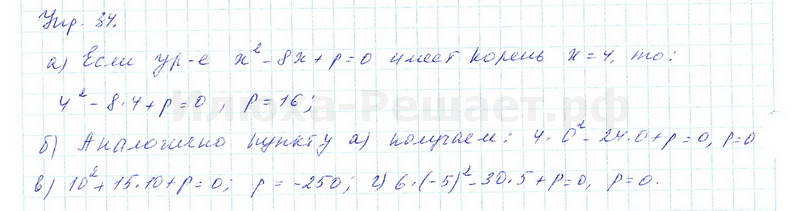 Упр. 34.
а) Если ур-е x² - 8x + p = 0 имеет корень x = 4, то:
4² - 8·4 + p = 0, p = 16;
Илюха-Решает.рф
б) Аналогично пункту а) получаем: 4·0² - 24·0 + p = 0, p = 0
в) 10² + 15·10 + p = 0; p = -250; г) 6·(-5)² - 30·5 + p = 0, p = 0.